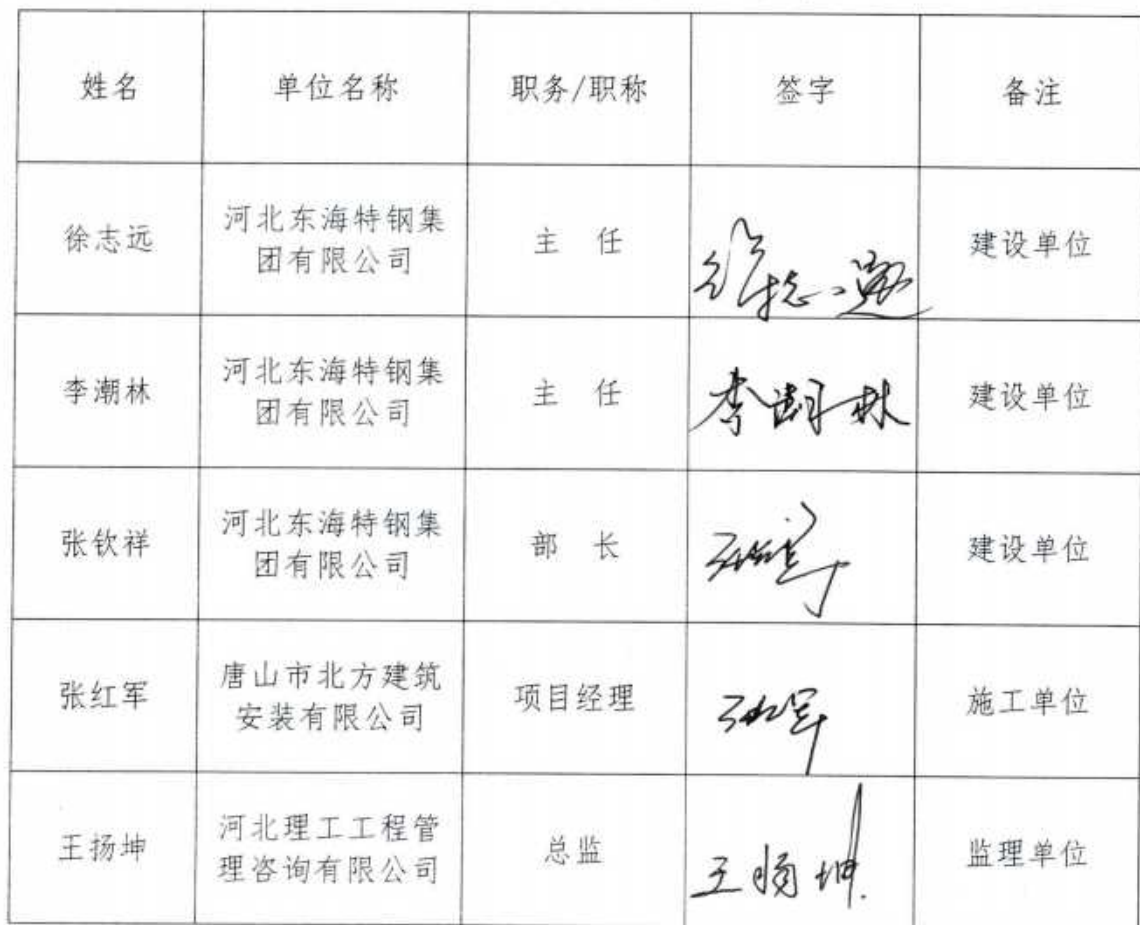 姓名 单位名称 职务/职称 签字 备注
徐志远 河北东海特钢集团有限公司 主 任 徐志远 建设单位
李潮林 河北东海特钢集团有限公司 主 任 李潮林 建设单位
张钦祥 河北东海特钢集团有限公司 部 长 建设单位
张红军 唐山市北方建筑安装有限公司 项目经理 张红军 施工单位
王扬坤 河北理工工程管理咨询有限公司 总监 王扬坤 监理单位